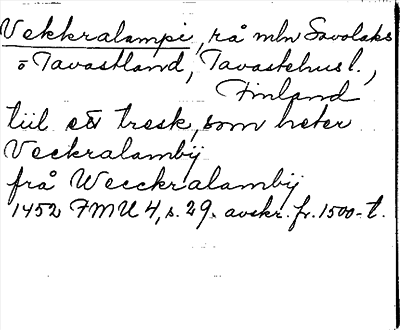 Vekkralampi, rå mln Savolaks
o Tavastland, Tavastehusl.,
Finland
tiil ett tresk, som heter
Veckralambij
frå Wecckralambij
1452 FMU 4, s. 29. avskr. fr. 1500-t.